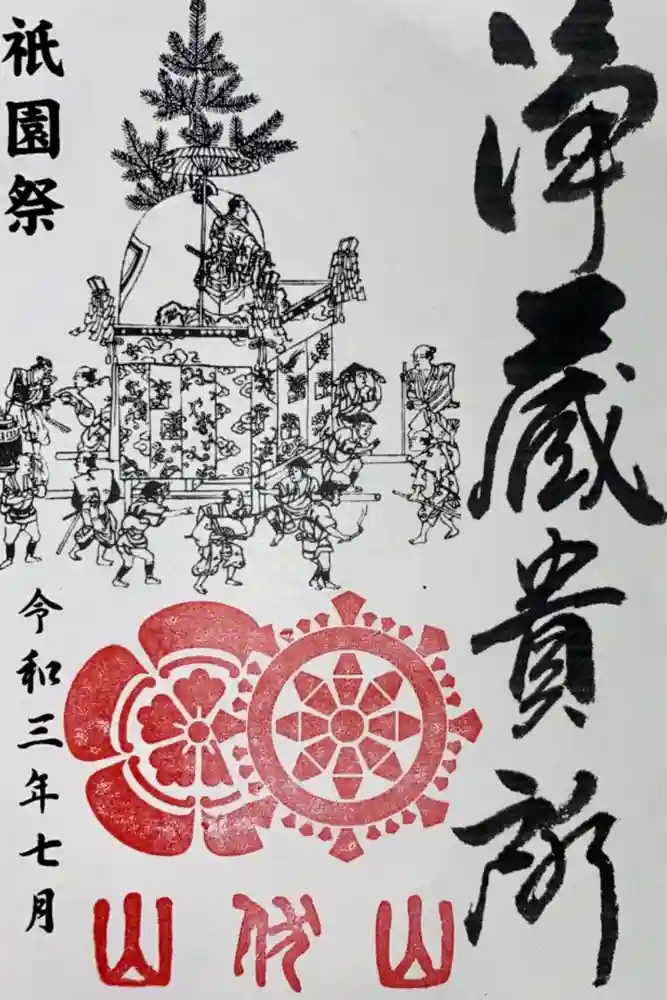 浄蔵貴所
祇園祭
令和三年七月
山伏山